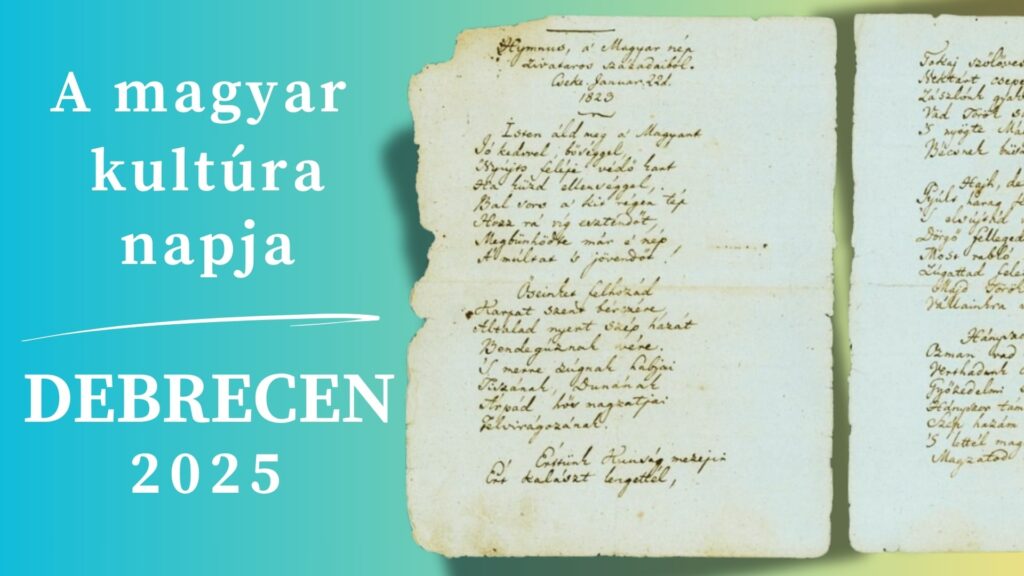 A magyar
kultúra
napja
DEBRECEN
2025
Hymnus, a' Magyar nép
zivataros századaiból.
Cseke Januar. 22d.
1823
Isten áldd meg a' Magyart
Jó kedvvel, bőséggel,
Nyújts feléje védő kart
Ha küzd ellenséggel,
Bal sors a' kit régen tép
Hozz rá víg esztendőt,
Megbűnhödte már e' nép
A' múltat 's jövendőt!
Őseinket felhozád
Kárpát szent bérczére,
Általad nyert szép hazát
Bendegúznak vére.
'S merre zúgnak habjai
Tiszának, Dunának
Árpád hős magzatjai
Felvirágozának.
Értünk Kunság mezejin
Ért kalászt lengettél,
Tokaj
Nektárt
Zászlónk
Vad Török
'S nyögte
Bécsnek
Hajh,
Gyúlt harag
'S elsújtád
Dörgő fellegedben
Most rabló
Zúgattad
Majd Török
Vállainkra
Ozman vad
Verthadunk
Győzedelmi
Hányszor
Szép hazám
'S lettél
Magzatod